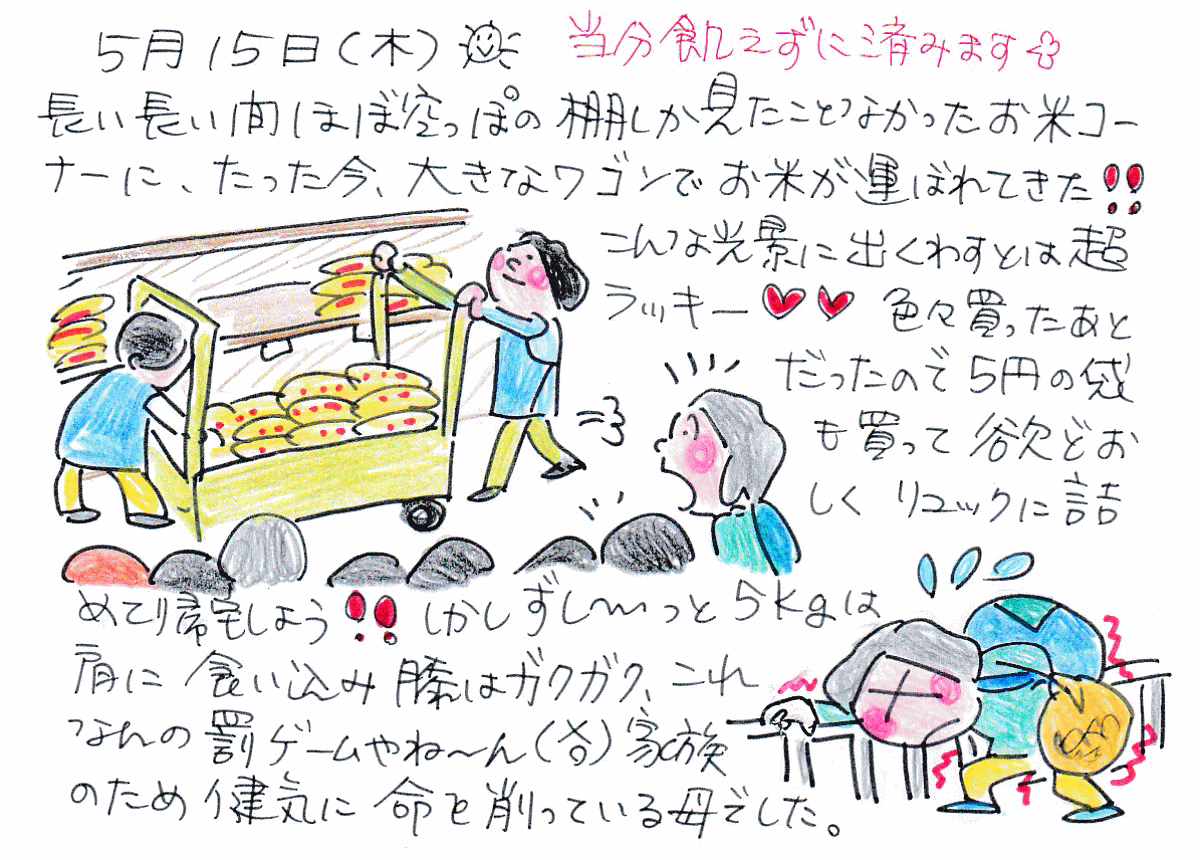 5月15日(木) 当分飢えずに済みます
長い長い間ほぼ空っぽの棚しか見たことなかったお米コー
ナーに、たった今、大きなワゴンでお米が運ばれてきた!!
こんな光景に出くわすとは超
ラッキー♥♥ 色々買ったあと
だったので5円の袋
も買って欲どお
しくリュックに詰
めて帰宅しよう!!しかしずし〜っと5kgは
肩に食い込み膝はガクガク、これ
なんの罰ゲームやね〜ん(笑)家族
のため健気に命を削っている母でした。